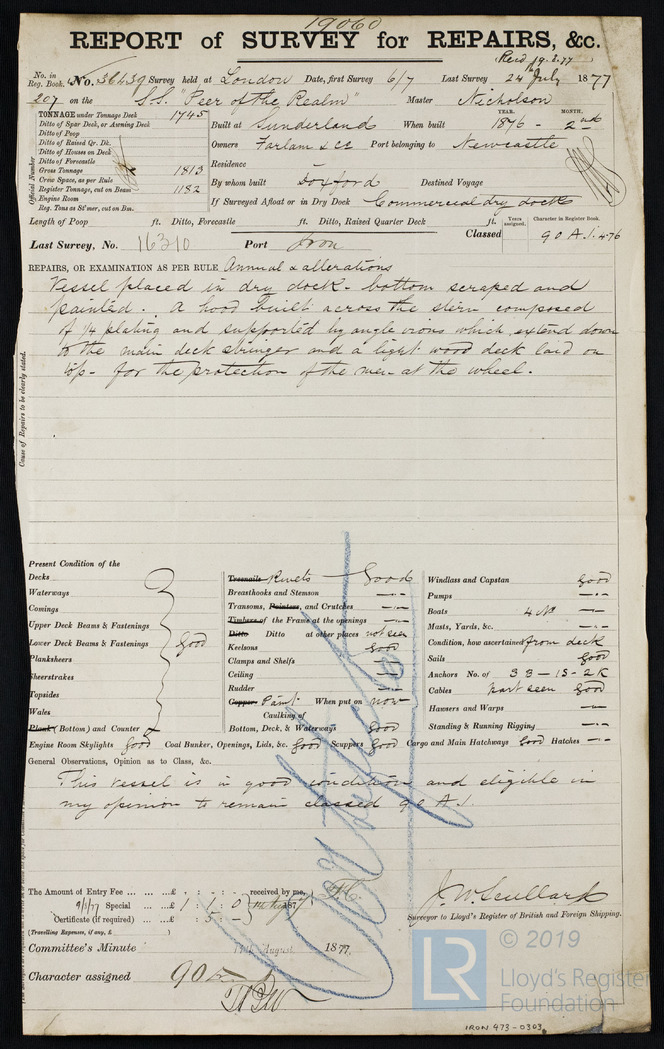 19060
REPORT of SURVEY for REPAIRS, &c.
Recd 19.8.77
No. in Reg. Book. No. 36439 Survey held at London Date, first Survey 6/7 Last Survey 24th July 1877
207 on the S.S. "Peer of the Realm" Master Nicholson
TONNAGE under Tonnage Deck 1745
Ditto of Spar Deck, or Awning Deck
Ditto of Poop
Ditto of Raised Qr. Dk.
Ditto of Houses on Deck
Ditto of Forecastle
Gross Tonnage 1813
Crew Space, as per Rule
Register Tonnage, cut on Beam 1182
Engine Room
Reg. Tons as St'mer, cut on Bm.
Official Number
YEAR. MONTH.
Built at Sunderland When built 1876 - 2
Owners Farlam & Co Port belonging to Newcastle
Residence
By whom built Foxford Destined Voyage
If Surveyed Afloat or in Dry Dock Commercial dry docks
Length of Poop ft. Ditto, Forecastle ft. Ditto, Raised Quarter Deck ft.
Years assigned. Character in Register Book.
Last Survey, No. 16310 Port Iron Classed 90 A.1. 4-76
REPAIRS, OR EXAMINATION AS PER RULE Annual & alterations
Vessel placed in dry dock - bottom scraped and
painted. A hood built across the stern composed
of 1/4 plating and supported by angle irons which extend down
to the main deck stringer and a light wood deck laid on
top - for the protection of the men at the wheel.
Cause of Repairs to be clearly stated.
Present Condition of the
Decks
Waterways
Comings
Upper Deck Beams & Fastenings
Lower Deck Beams & Fastenings Good
Planksheers
Sheerstrakes
Topsides
Wales
Plank (Bottom) and Counter
Treenails Rivets Good
Breasthooks and Stemson -"-
Transoms, Pointers, and Crutches -"-
Timbers of the Frame at the openings -"-
Ditto Ditto at other places not seen
Keelsons Good
Clamps and Shelfs -"-
Ceiling -"-
Rudder -"-
Copper Paint. When put on now
Caulking of
Bottom, Deck, & Waterways Good
Windlass and Capstan Good
Pumps -"-
Boats 4 No -"-
Masts, Yards, &c. -"-
Condition, how ascertained from deck
Sails Good
Anchors No. of 3 B - 1 S - 2 K
Cables part seen Good
Hawsers and Warps -"-
Standing & Running Rigging -"-
Engine Room Skylights Good Coal Bunker, Openings, Lids, &c. Good Scuppers Good Cargo and Main Hatchways Good Hatches -"-
General Observations, Opinion as to Class, &c.
This vessel is in good condition and eligible in
my opinion to remain classed 90 A.1.
The Amount of Entry Fee ... ... ...£ - : - : - received by me,
Special ... ...£ 1 : 1 : 0 187
Certificate (if required) ... ...£ : 5 : -
(Travelling Expenses, if any, £ )
J. W. Scullard
Surveyor to Lloyd's Register of British and Foreign Shipping.
Committee's Minute August 1877.
Character assigned 90
© 2019
LR Lloyd's Register
Foundation
IRON 473-0303